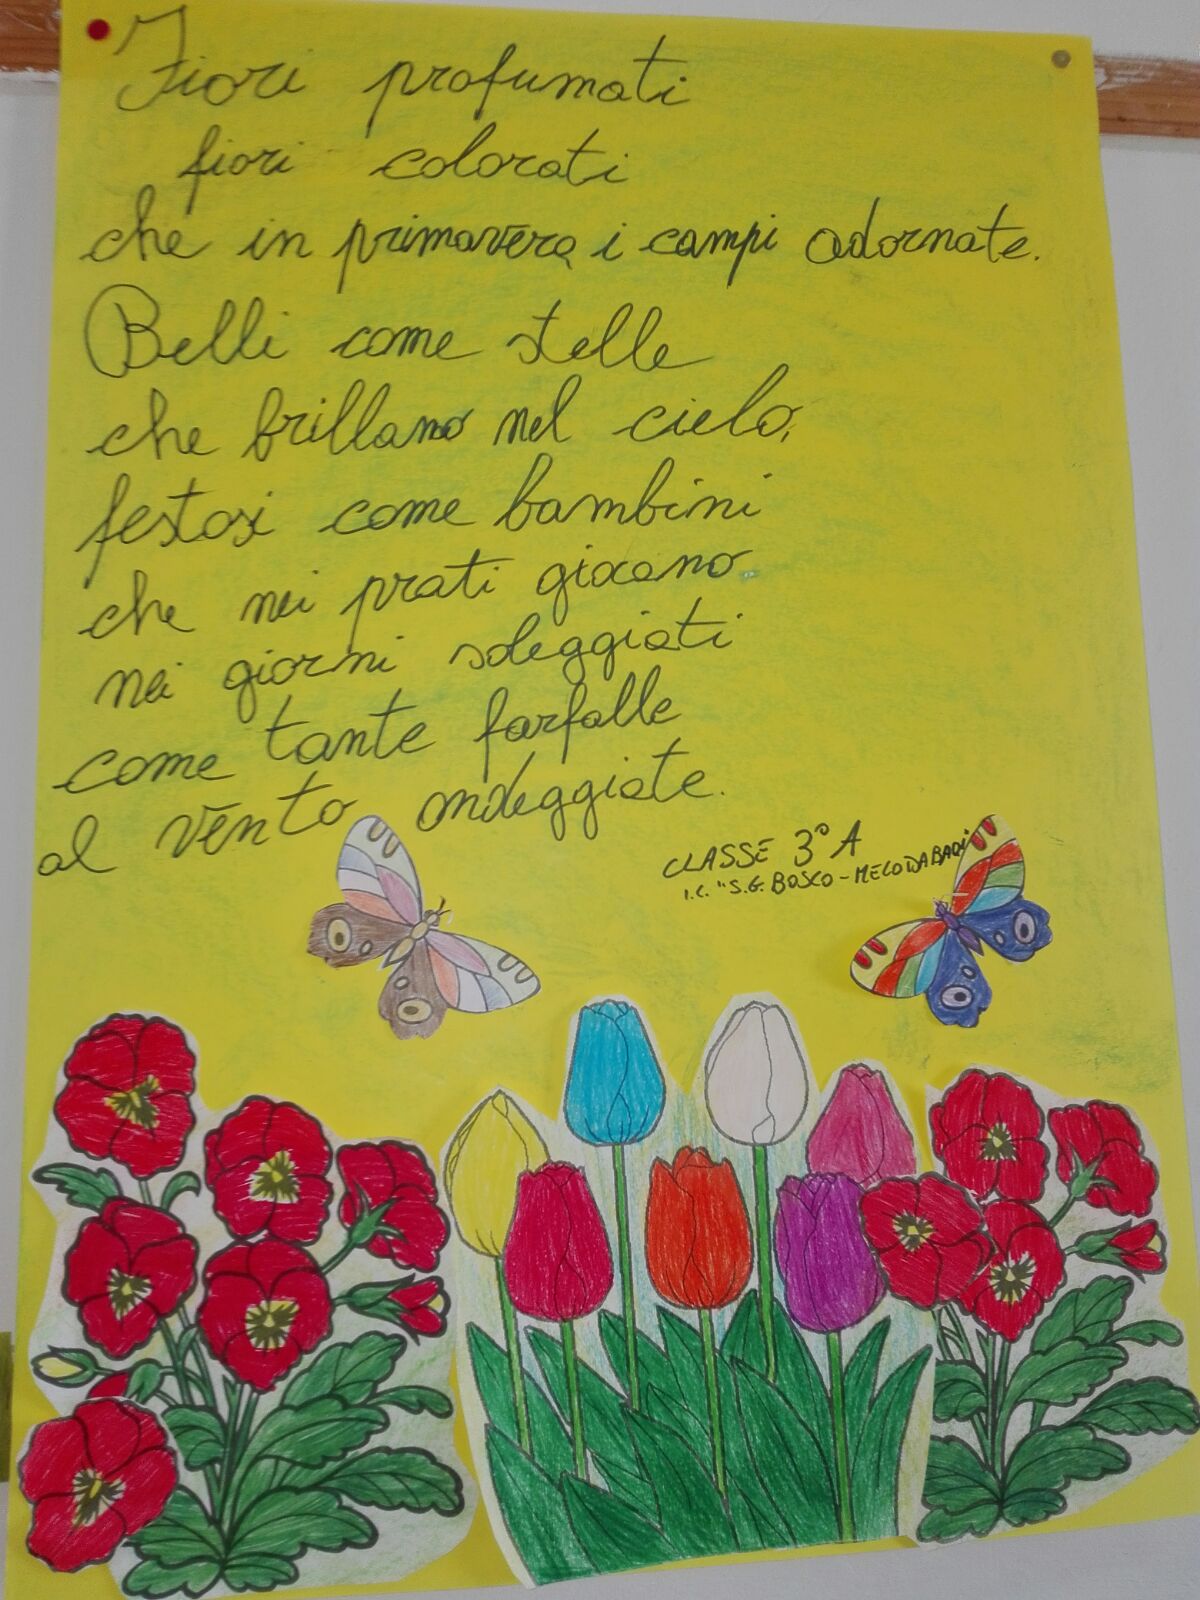 Fiori profumati
fiori colorati
che in primavera i campi adornate.
Belli come stelle
che brillano nel cielo,
festosi come bambini
che nei prati giocano
nei giorni soleggiati
come tante farfalle
al vento ondeggiate.
CLASSE 3° A
I.C. "S.G. BOSCO - MELO DA BARI"